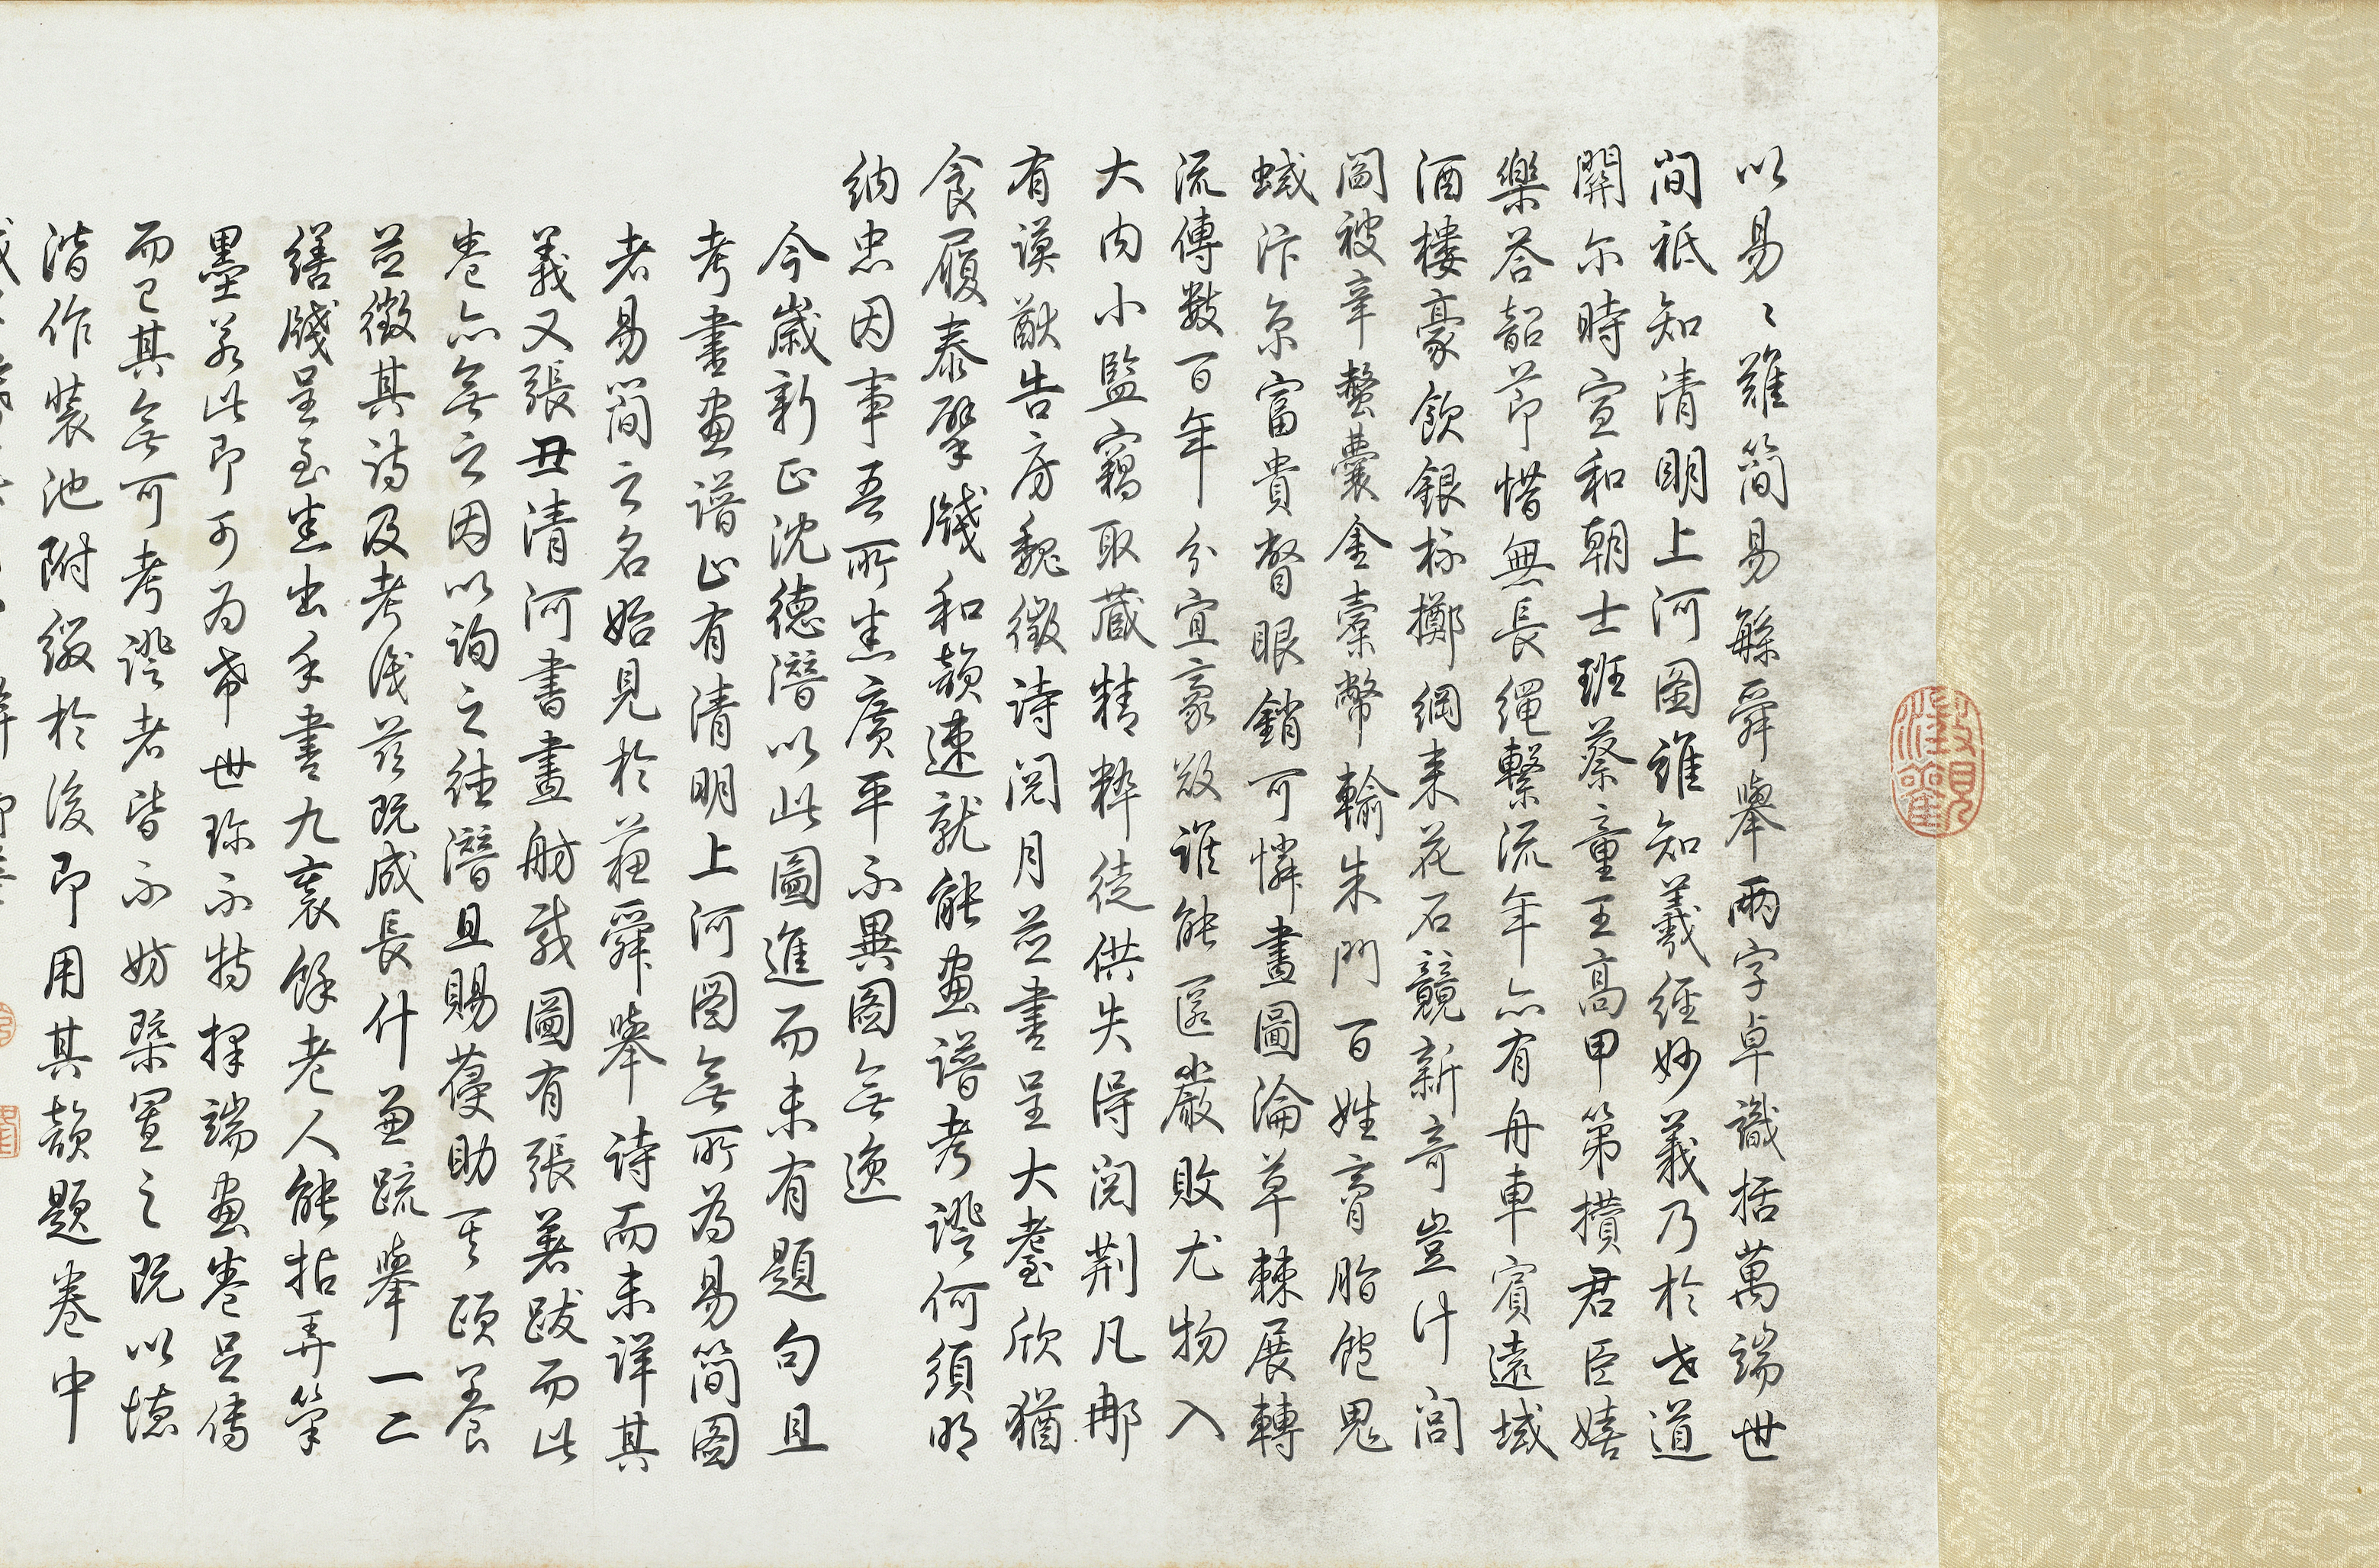 以易〻難簡易繇舜舉兩字卓識括萬端世
間祇知清明上河圖誰知羲經妙義乃於此道
開尔時宣和朝士班蔡童王高甲第攢君臣嬉
樂荅韶節惜無長繩繫流年亦有舟車賓遠域
酒樓豪飲銀杯擲綱来花石競新奇豈計閭
閻被辛螫囊金橐幣輸朱門百姓膏脂飽鬼
蜮汴京富貴瞥眼銷可憐畫圖淪草棘展轉
流傳數百年分宜豪敚誰能匿嚴敗尤物入
大内小監竊取蔵精粋徒供失得閱荆凡那
有謨猷告房魏徵詩閱月並書呈大耋欣猶
食履泰擘牋和韻速就能畫譜考證何須明
納忠因事吾所嘉廣平不異圖無逸
今歲新正沈德潛以此圖進而未有題句且
考書畫譜止有清明上河圖無所為易簡圖
者易簡之名始見於蘓舜舉詩而未詳其
義又張丑清河書畫舫載圖有張著跋而此
卷亦無之因以詢之德潛且賜葠助其頤養
並徵其詩及考後茲既成長什兼疏舉一二
繕牋呈至嘉出手書九袠餘老人能拈弄筆
墨若此即可為希世珍不特擇端畫卷足傳
而已其無可考證者皆不妨槩置之既以德
潛作裝池附綴於後即用其韻題卷中